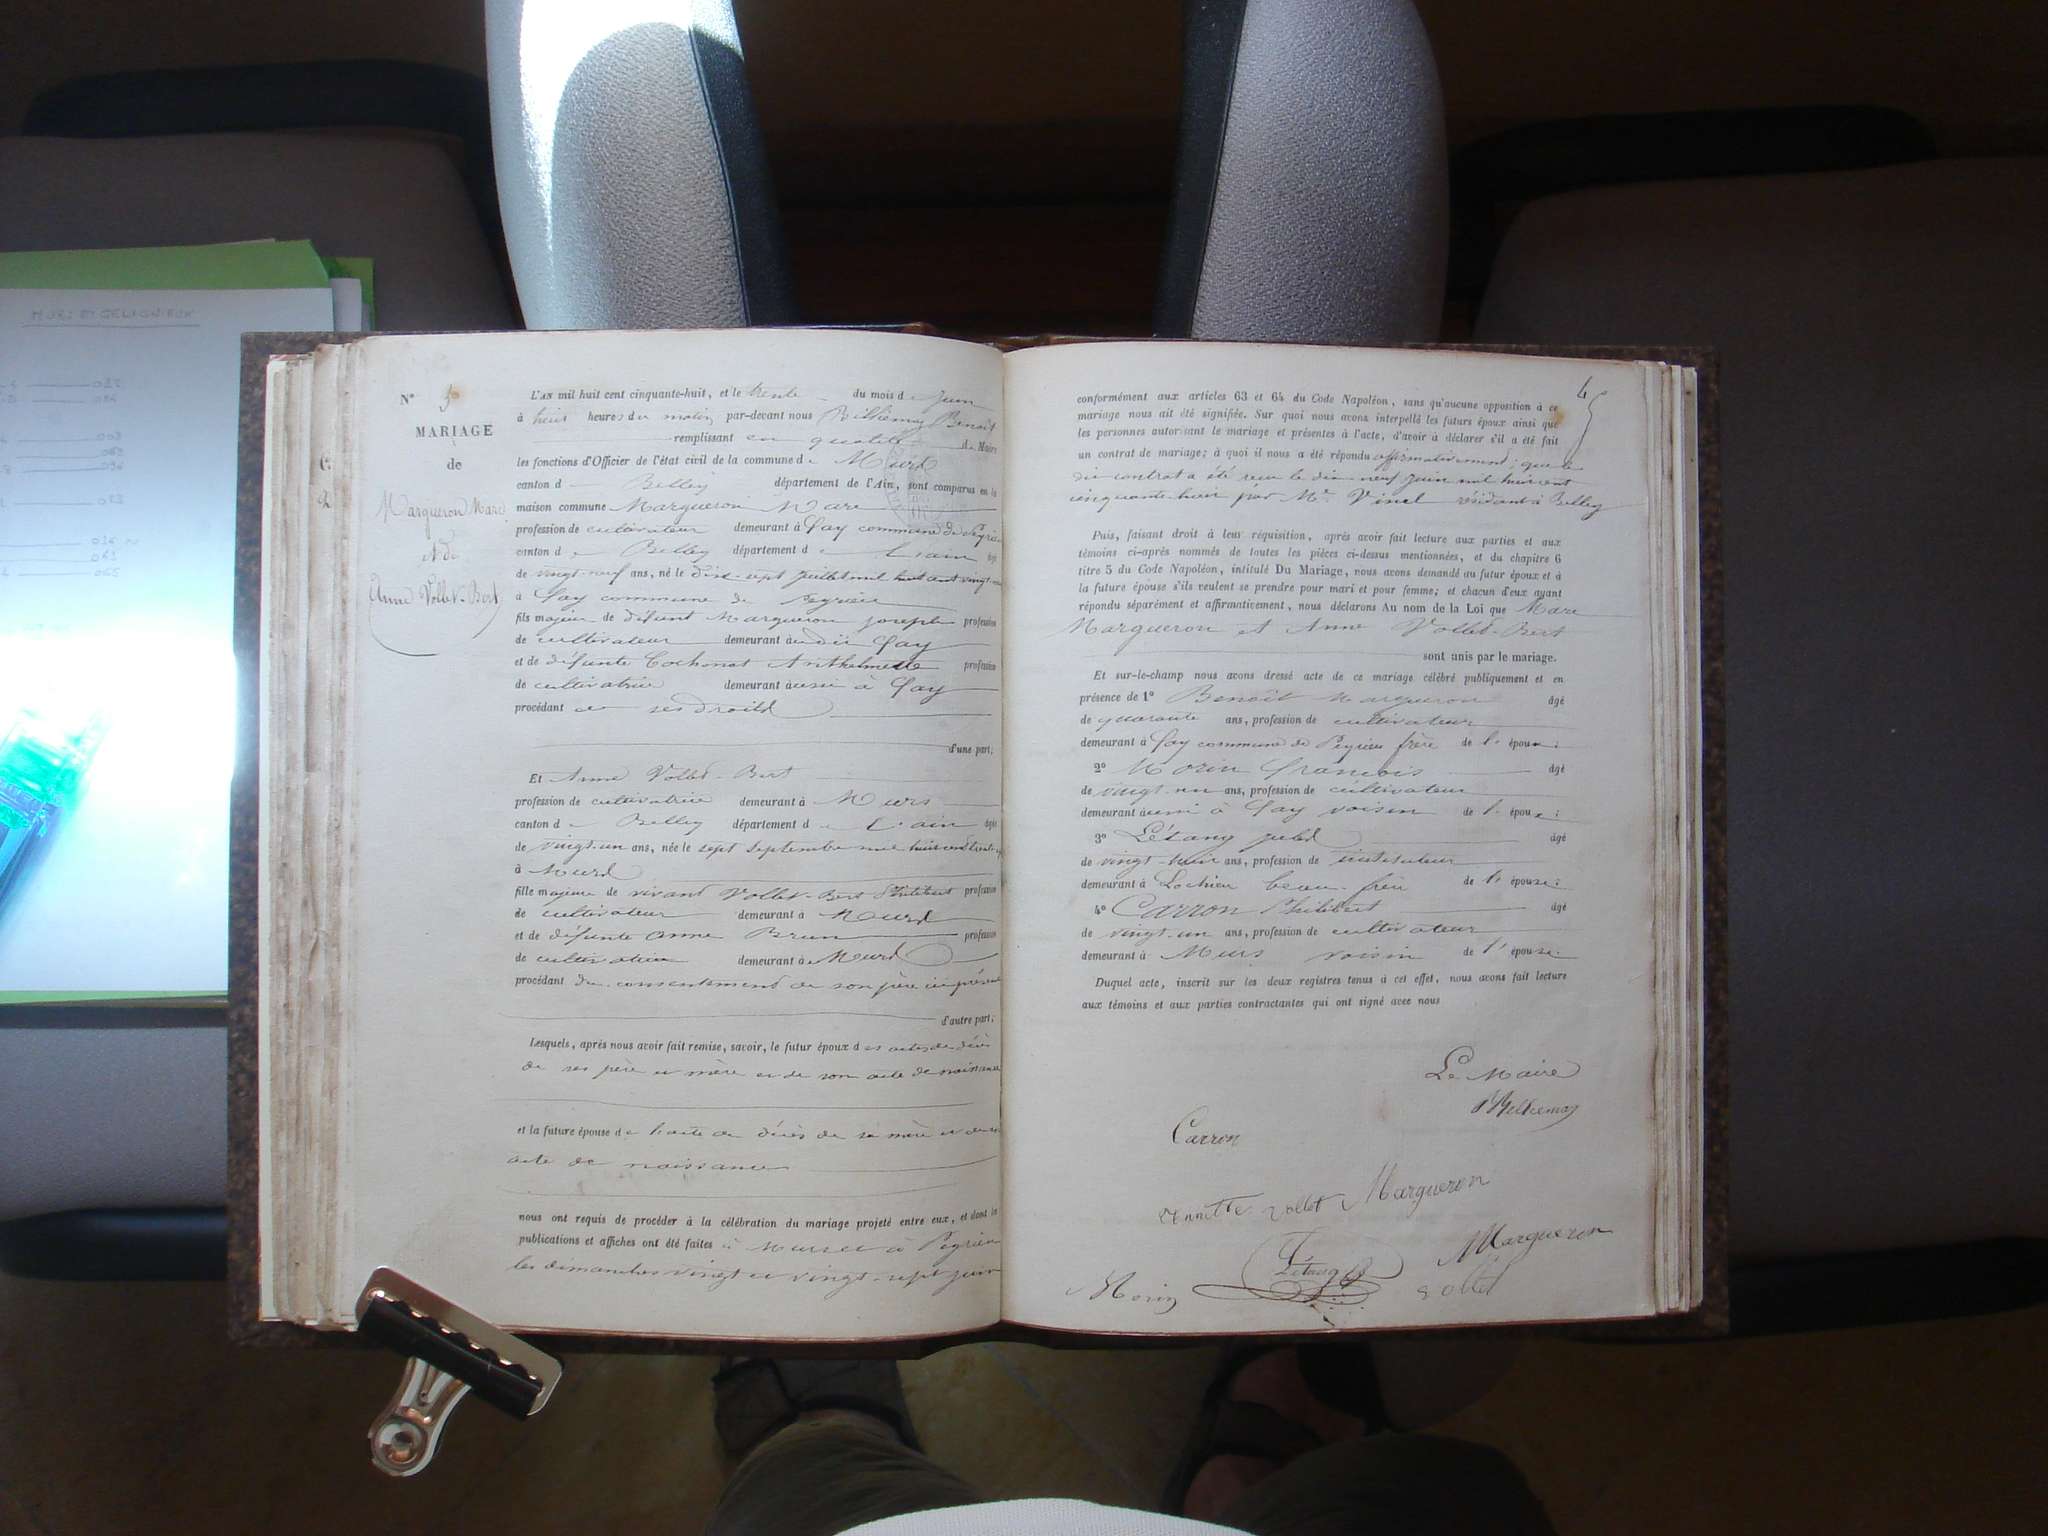 MURS ET GELIGNIEUX
N° 5
MARIAGE
de
Margueron Marc
et de
Anne Vollet-Bert
L'AN mil huit cent cinquante-huit, et le trente du mois de juin
à huit heures du matin par-devant nous Billiemaz Benoît
remplissant en qualité de Maire
les fonctions d'Officier de l'état civil de la commune de Murs
canton de Belley département de l'Ain, sont comparus en la
maison commune Margueron Marc
profession de cultivateur demeurant à Fay commune de Peyrieu
canton de Belley département de L'ain âgé
de vingt-neuf ans, né le dix-sept juillet mil huit cent vingt-
à Fay commune de Peyrieu
fils majeur de défunt Margueron joseph profession
de cultivateur demeurant audit Fay
et de défunte Cochonat Anthelmette profession
de cultivatrice demeurant aussi à Fay
procédant de ses droits
d'une part;
Et Anne Vollet-Bert
profession de cultivatrice demeurant à Murs
canton de Belley département de L'ain âgée
de vingt-un ans, née le sept septembre mil huit cent
à Murs
fille majeure de vivant Vollet-Bert Philibert profession
de cultivateur demeurant à Murs
et de défunte Anne Brun profession
de cultivatrice demeurant à Murs
procédant du consentement de son père ici présent
d'autre part;
Lesquels, après nous avoir fait remise, savoir, le futur époux des actes de décès
de ses père et mère et de son acte de naissance
et la future épouse de l'acte de décès de sa mère et de son
acte de naissance
nous ont requis de procéder à la célébration du mariage projeté entre eux, et dont les
publications et affiches ont été faites à Murs et à Peyrieu
les dimanches vingt et vingt-sept juin
45
conformément aux articles 63 et 64 du Code Napoléon, sans qu'aucune opposition à ce
mariage nous ait été signifiée. Sur quoi nous avons interpellé les futurs époux ainsi que
les personnes autorisant le mariage et présentes à l'acte, d'avoir à déclarer s'il a été fait
un contrat de mariage; à quoi il nous a été répondu affirmativement; que le
dit contrat a été reçu le dix-neuf juin mil huit cent
cinquante-huit par Me Vinel résidant à Belley
Puis, faisant droit à leur réquisition, après avoir fait lecture aux parties et aux
témoins ci-après nommés de toutes les pièces ci-dessus mentionnées, et du chapitre 6
titre 5 du Code Napoléon, intitulé Du Mariage, nous avons demandé au futur époux et à
la future épouse s'ils veulent se prendre pour mari et pour femme; et chacun d'eux ayant
répondu séparément et affirmativement, nous déclarons Au nom de la Loi que Marc
Margueron et Anne Vollet-Bert
sont unis par le mariage.
Et sur-le-champ nous avons dressé acte de ce mariage célébré publiquement et en
présence de 1° Benoît Margueron âgé
de quarante ans, profession de cultivateur
demeurant à Fay commune de Peyrieu frère de l'époux;
2° Morin françois âgé
de vingt-un ans, profession de cultivateur
demeurant aussi à Fay voisin de l'époux;
3° Létang jules âgé
de vingt-huit ans, profession de instituteur
demeurant à Lochieu beau-frère de l'épouse;
4° Carron Philibert âgé
de vingt-un ans, profession de cultivateur
demeurant à Murs voisin de l'épouse.
Duquel acte, inscrit sur les deux registres tenus à cet effet, nous avons fait lecture
aux témoins et aux parties contractantes qui ont signé avec nous
Le Maire
Billiemaz
Carron
Annette vollet Margueron
Margueron
Létang
Morin
vollet